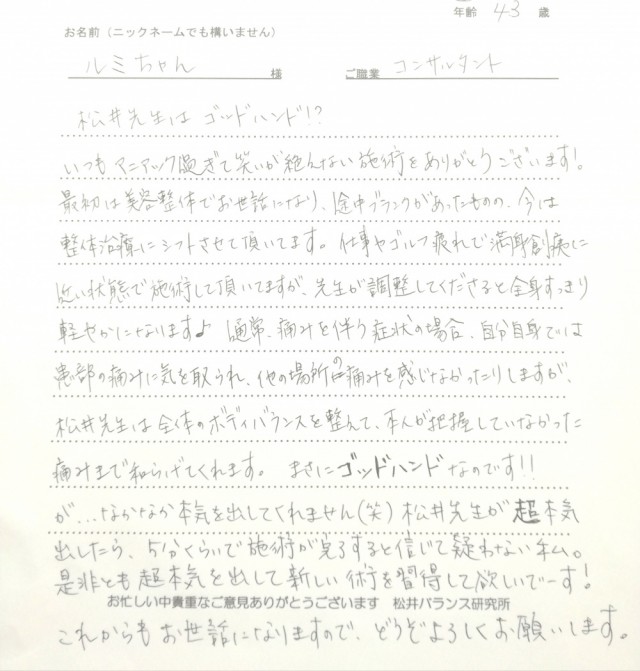 年齢 43 歳
お名前（ニックネームでも構いません）
ルミちゃん 様 ご職業 コンサルタント
松井先生は ゴッドハンド!?
いつもマニアック過ぎて笑いが絶えない施術をありがとうございます!
最初は美容整体でお世話になり、途中ブランクがあったものの、今は
整体治療にシフトさせて頂いてます。仕事やゴルフ疲れで満身創痍に
近い状態で施術して頂いてますが、先生が調整してくださると全身すっきり
軽やかになります♪ 通常、痛みを伴う症状の場合、自分自身では
患部の痛みに気を取られ、他の場所の痛みを感じなかったりしますが、
松井先生は全体のボディバランスを整えて、本人が把握していなかった
痛みまで和らげてくれます。まさにゴッドハンドなのです!!
が...なかなか本気を出してくれません(笑) 松井先生が超本気
出したら、5分くらいで施術が完了すると信じて疑わない私。
是非とも超本気を出して新しい術を習得して欲しいでーす!
お忙しい中貴重なご意見ありがとうございます 松井バランス研究所
これからもお世話になりますので、どうぞよろしくお願いします。